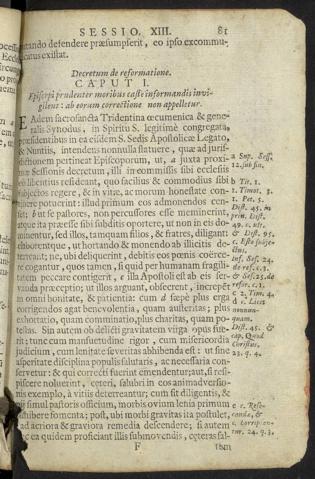 SESSIO. XIII. 81
tando defendere præsumpserit, eo ipso excommu-
nicatus existat.
Decretum de reformatione.
CAPUT I.
Episcopi prudenter moribus castè informandis invi-
gilent: ab eorum correctione non appelletur.
EAdem sacrosancta Tridentina œcumenica & gene-
ralis Synodus, in Spiritu S. legitimè congregata,
præsidentibus in ea eisdem S. Sedis Apostolicæ Legato,
& Nuntiis, intendens nonnulla statuere, quæ ad juris-
dictionem pertineat Episcoporum, ut, a juxta proxi-
Sessionis decretum, illi in commissis sibi ecclesiis
libentiùs resideant, quo faciliùs & commodiùs sibi b
subjectos regere, & in vitæ, ac morum honestate con-
tinere potuerint: illud primum eos admonendos cen-
set: but se pastores, non percussores esse meminerint,
atque ita præesse sibi subditis oportere, ut non in eis do-
minentur, sed illos, tamquam filios, & fratres, diligant:
elaborentque, ut hortando & monendo ab illicitis de-
terreant; ne, ubi deliquerint, debitis eos pœnis coërce-
re cogantur, quos tamen, si quid per humanam fragili-
tatem peccare contigerit, c illa Apostoli est ab eis ser-
vanda præceptio; ut illos arguant, obsecrent, increpent
in omni bonitate, & patientia: cum d sæpè plus erga
corrigendos agat benevolentia, quam austeritas; plus
exhortatio, quam comminatio, plus charitas, quam po-
testas. Sin autem ob delicti gravitatem virga opus fue-
rit: tunc cum mansuetudine rigor, cum misericordia
judicium, cum lenitate severitas adhibenda est: ut sine
asperitate disciplina populis salutaris, ac necessaria con-
servetur: & qui correcti fuerint emendentur; aut, si resi-
piscere noluerint, ceteri, salubri in eos animadversio-
nis exemplo, à vitiis deterreantur; cum sit diligentis, &
pii simul pastoris officium, morbis ovium levia primum
adhibere fomenta; post, ubi morbi gravitas ita postulet,
ad acriora & graviora remedia descendere; si autem
nec ea quidem proficiant illis submovendis, ceteras sal-
F tem
a Sup. Sess.
12. sub fin.
b Tit. 1.
1. Timot. 3.
1. Pet. 5.
Dist. 45. in
prin. Dist.
& Dist. 95.
c. Esto subje-
ctus.
Inf. Sess. 24.
de ref. c. 1.
& Sess. 25. de
refor. c. 1.
c 2. Tim. 4.
d c. Licet
nonnun-
quam.
Dist. 45. &
cap. Quod
Christus,
23. q. 4.
e c. Rese-
candæ, &
c. Corripian-
tur. 24. q. 3.